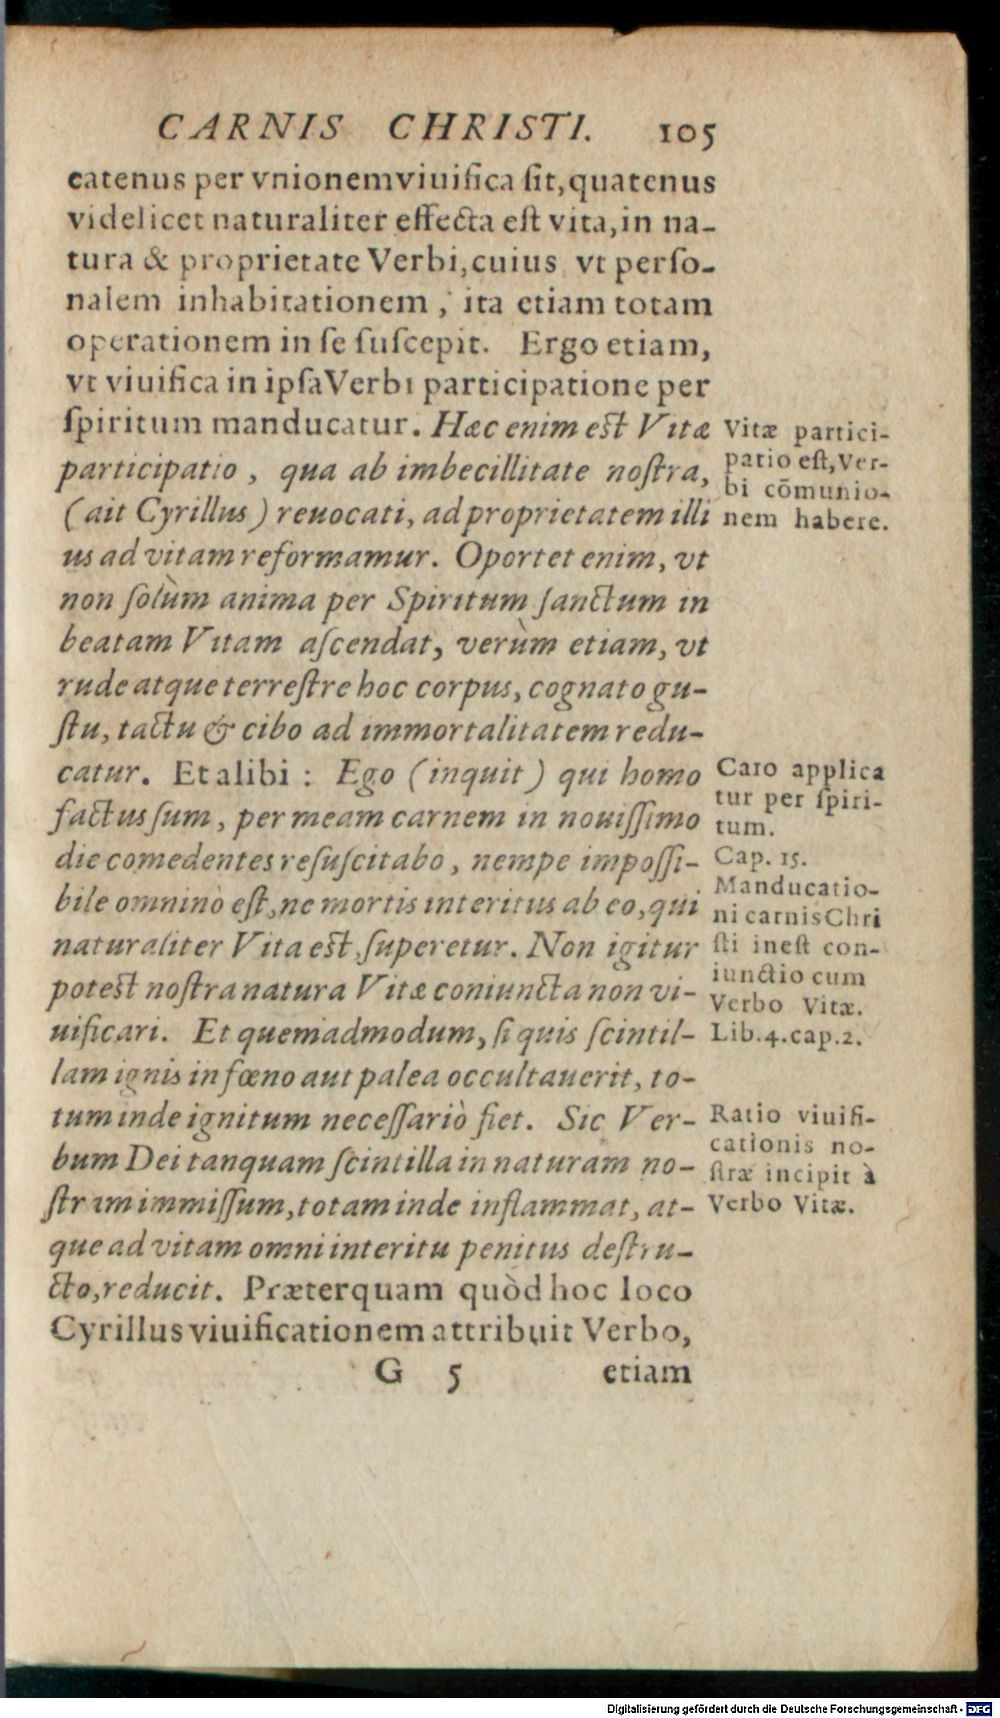 CARNIS CHRISTI. 105
eatenus per vnionem viuifica ſit, quatenus
videlicet naturaliter effecta eſt vita, in na-
tura & proprietate Verbi, cuius vt perſo-
nalem inhabitationem, ita etiam totam
operationem in ſe ſuſcepit. Ergo etiam,
vt viuifica in ipſa Verbi participatione per
ſpiritum manducatur. Hæc enim eſt Vitæ
participatio, qua ab imbecillitate noſtra,
(ait Cyrillus) reuocati, ad proprietatem illi
us ad vitam reformamur. Oportet enim, vt
non ſolùm anima per Spiritum ſanctum in
beatam Vitam aſcendat, verùm etiam, vt
rude atque terreſtre hoc corpus, cognato gu-
ſtu, tactu & cibo ad immortalitatem redu-
catur. Et alibi : Ego (inquit) qui homo
factus ſum, per meam carnem in nouiſſimo
die comedentes reſuſcitabo, nempe impoſſi-
bile omninò eſt, ne mortis interitus ab eo, qui
naturaliter Vita eſt, ſuperetur. Non igitur
poteſt noſtra natura Vitæ coniuncta non vi-
uificari. Et quemadmodum, ſi quis ſcintil-
lam ignis in fœno aut palea occultauerit, to-
tum inde ignitum neceſſariò fiet. Sic Ver-
bum Dei tanquam ſcintilla in naturam no-
ſtram immiſſum, totam inde inflammat, at-
que ad vitam omni interitu penitus deſtru-
cto, reducit. Præterquam quòd hoc loco
Cyrillus viuificationem attribuit Verbo,
G 5 etiam
Vitæ partici-
patio eſt, Ver-
bi cōmunio-
nem habere.
Caro applica
tur per ſpiri-
tum.
Cap. 15.
Manducatio-
ni carnis Chri
ſti ineſt con-
iunctio cum
Verbo Vitæ.
Lib. 4. cap. 2.
Ratio viuifi-
cationis no-
ſtræ incipit à
Verbo Vitæ.
Digitalisierung gefördert durch die Deutsche Forschungsgemeinschaft - DFG